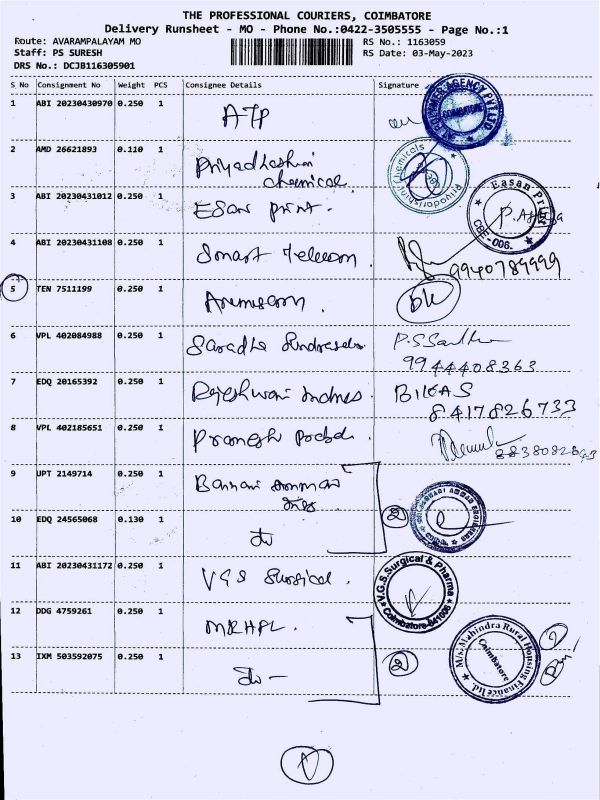 THE PROFESSIONAL COURIERS, COIMBATORE
Delivery Runsheet - MO - Phone No.:0422-3505555 - Page No.:1
Route: AVARAMPALAYAM MO
RS No.: 1163059
Staff: PS SURESH
RS Date: 03-May-2023
DRS No.: DCJB116305901
S No Consignment No Weight PCS Consignee Details Signature
1 ABI 20230430970 0.250 1 ATP
AGENCY PVT LTD
COIMBATORE
2 AMD 26621893 0.110 1 Priyadharshini
chemical
Priyadarishini Chemicals
3 ABI 20230431012 0.250 1 ESan print.
Easan Print
CBE-006.
4 ABI 20230431108 0.250 1 Smart Telecom.
9940789999
5 TEN 7511199 0.250 1
6 VPL 402084988 0.250 1 Saradha
P.S
9944408363
7 EDQ 20165392 0.250 1 Rajeshwari
BIKAS
8417826733
8 VPL 402185651 0.250 1 Pramesh
9 UPT 2149714 0.250 1 Bannari Amman
10 EDQ 24565068 0.130 1
2
11 ABI 20230431172 0.250 1 VGS Surgical.
V.G.S. Surgical & Pharma
Coimbatore-641006
12 DDG 4759261 0.250 1 MRHFL.
M/s. Mahindra Rural Housing Finance ltd.
Coimbatore
13 IXM 503592075 0.250 1
2